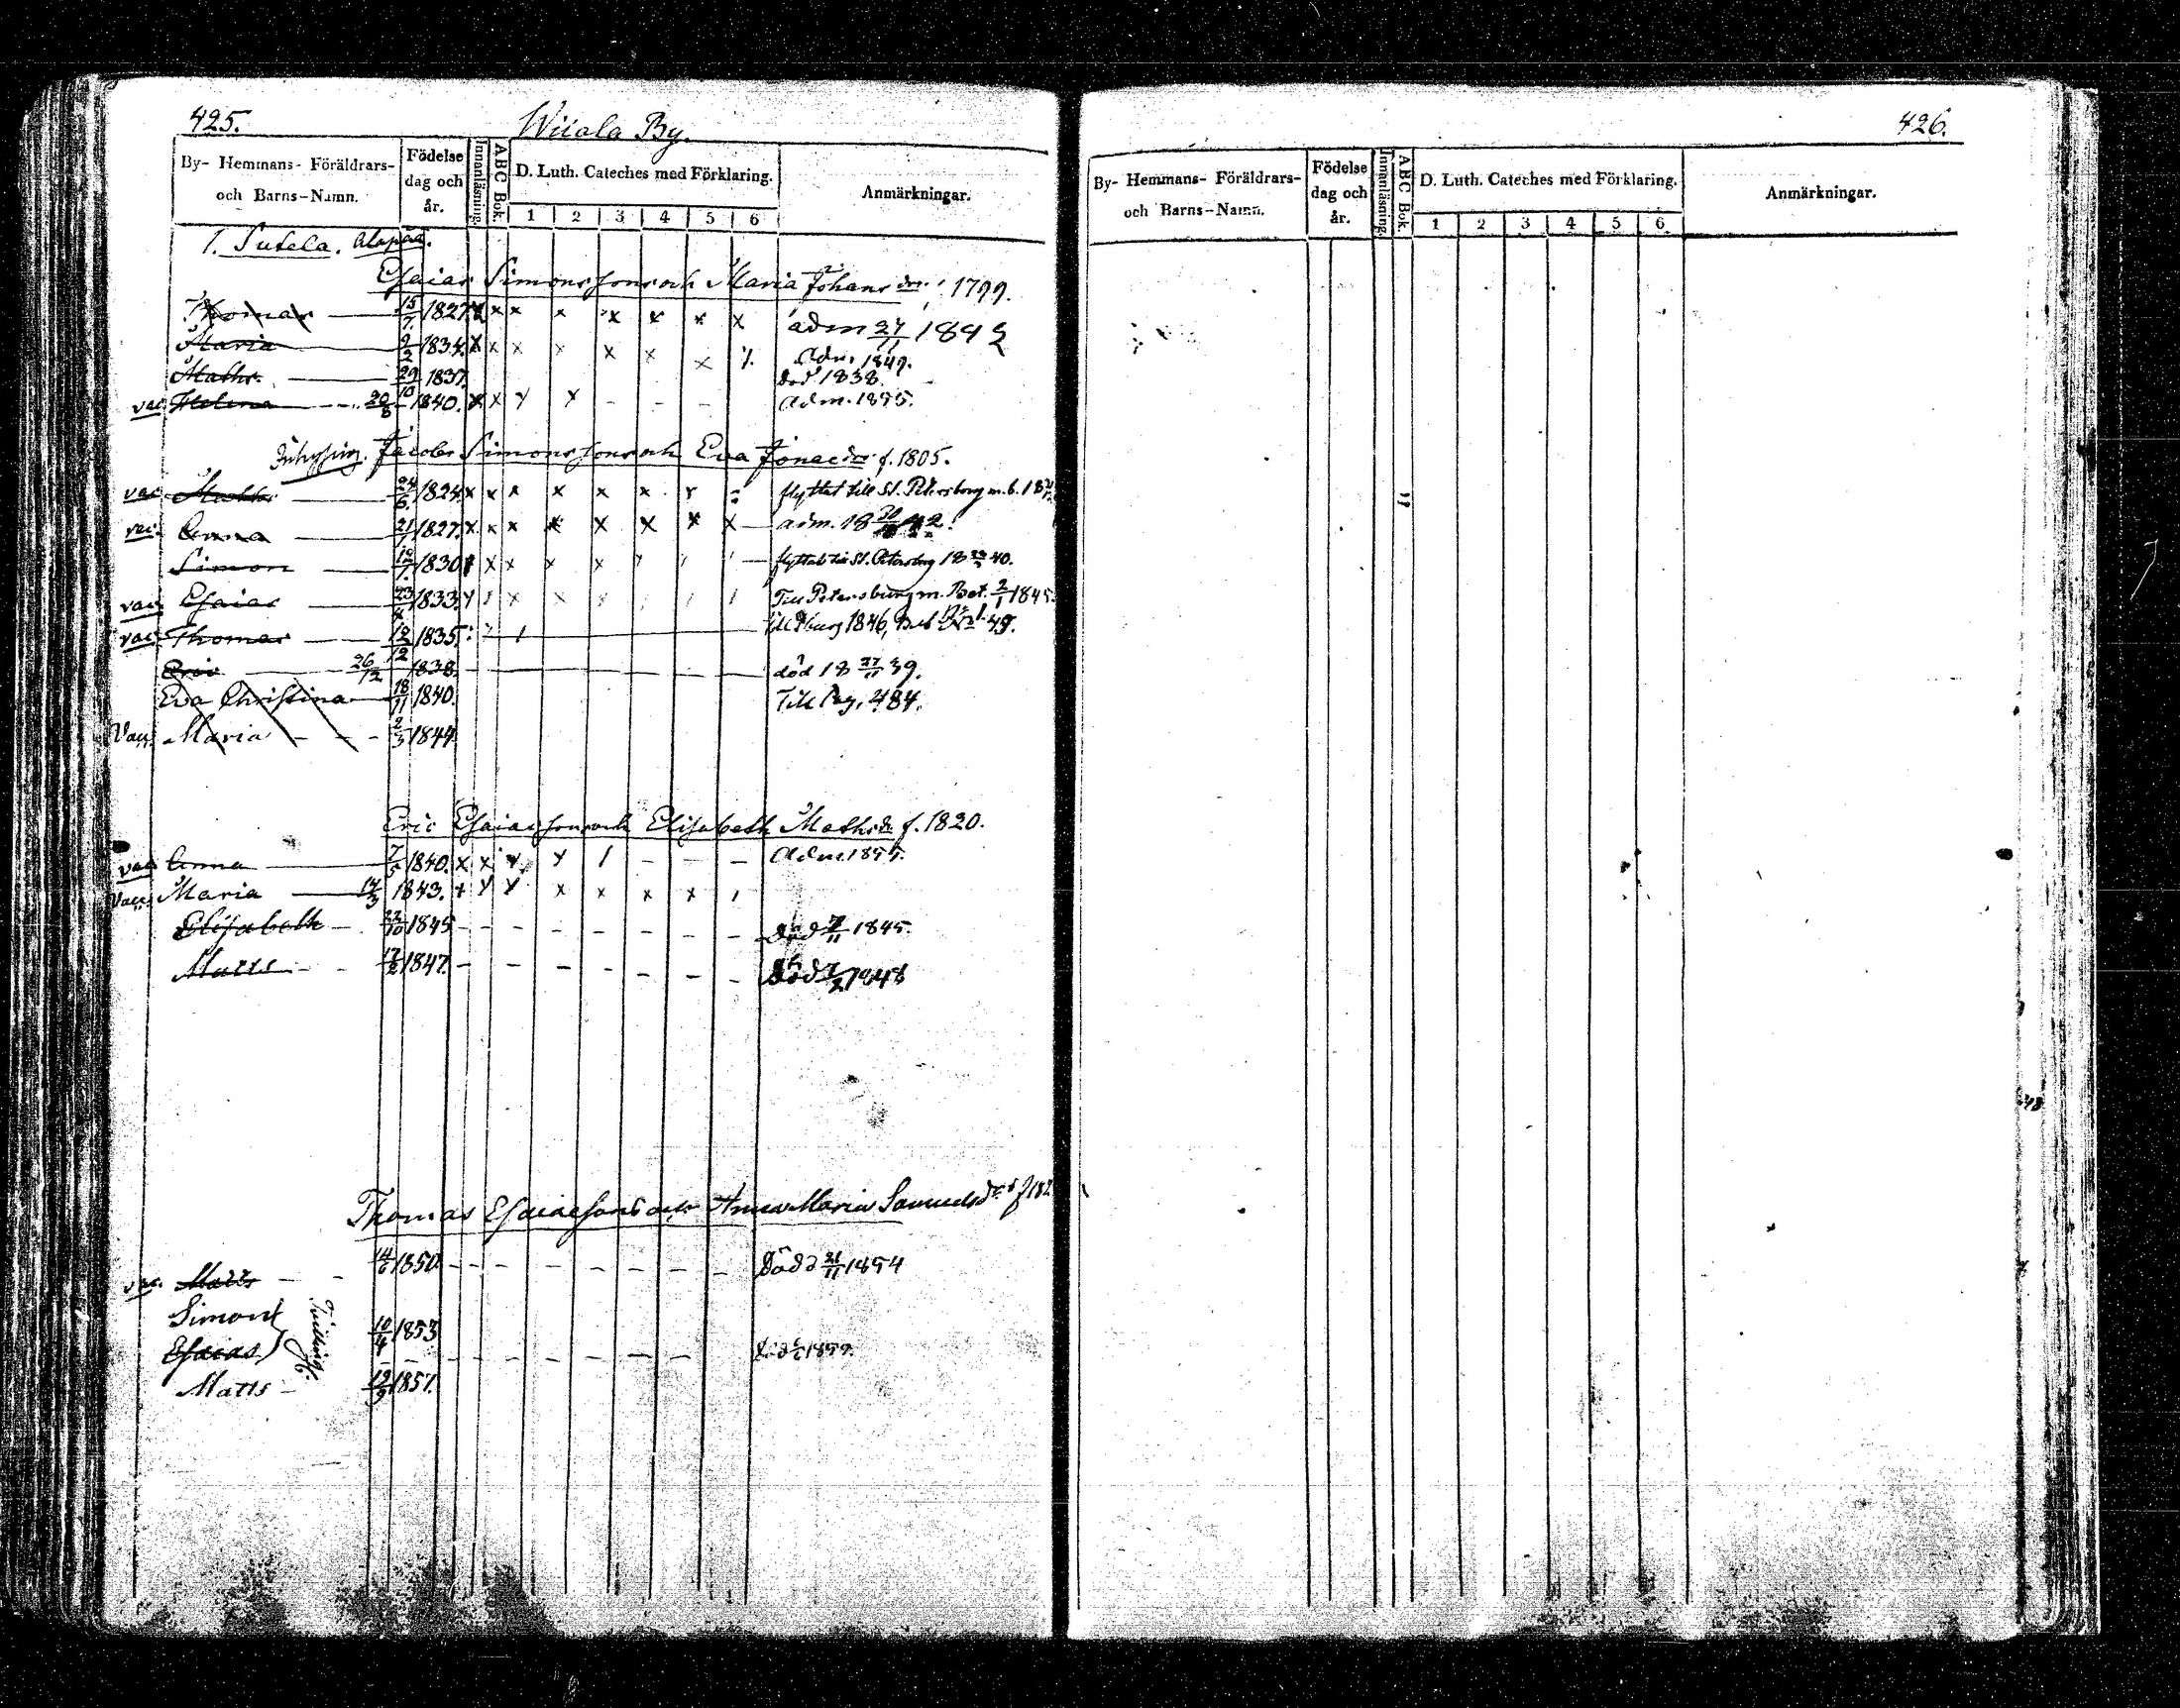 425.
Wiiala By.
By- Hemmans- Föräldrars- och Barns-Namn.
Födelse dag och år.
Innanläsning.
ABC Bok.
D. Luth. Cateches med Förklaring.
1 2 3 4 5 6
Anmärkningar.
1. Sutela. Alapää.
Esaias Simonsson och Maria Johans dr. 1799.
Thomas 15/7 1827 x x x x x x x x adm 27/11 1842
Maria 9/2 1834. x x x x x x x adm. 1849.
Maths. 29/10 1837. död 1838.
vac Helena 20/8 1840. x x y x - - - adm. 1855.
Inhysing. Jacob Simonsson och Eva Jonaedr f. 1805.
vac 24/6 1824 x x x x x x flyttat till St. Petersborg m. b.
vac. Anna 21/1 1827. x x x x x x x x adm. 18 42.
Simon 12/7 1830 x x x x flyttat till St. Petersborg 18 40.
vac Esaias 23/4 1833. Till Petersburg m. Bet. 2/1 1845.
vac Thomas 12/12 1835. burg 1846, 49.
Eric 26/12 1838. död 18 27/11 39.
Eva Christina 18/11 1840. Till Pag. 484.
Vacc. Maria - - - 2/3 1844
Eric Esaiasson och Elisabeth Mathsdr f. 1820.
vac Anna 7/5 1840. x x y y 1 - - - adm. 1855.
Vacc. Maria 14/3 1843. + y y x x x x
Elisabeth - 22/10 1845 - - - - - - - - död 7/11 1845.
Matts - - 17/2 1847. - - - - - - - död 7/2 1848
Thomas Esaiasson och Anna Maria Samuelsdr f 182
vac. Matts - - 14/6 1850 - - - - - - - - Död 21/11 1854
Simon
Tvilling
10/4 1853
Esaias - - - - - - - - död
Matts - 12/9 1857.
426.
By- Hemmans- Föräldrars- och Barns-Namn.
Födelse dag och år.
Innanläsning.
ABC Bok.
D. Luth. Cateches med Förklaring.
1 2 3 4 5 6
Anmärkningar.